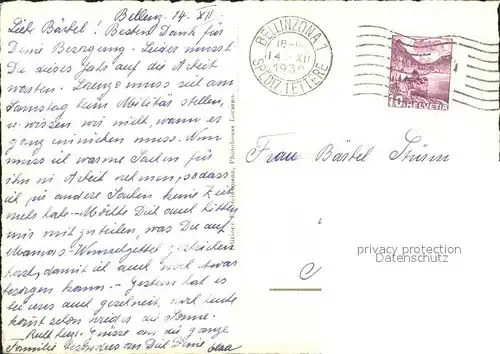 Bellenz, 14. XII.
Liebs Bärbel! Besten Dank für
Deine Besorgung. Leider musst
Du dieses Jahr auf die Arbeit
warten. Lorenzo muss seit am
Samstag beim Militär stellen,
u. wissen wir nicht, wann er
ganz einrücken muss. Nun
muss ich warme Sachen für
ihn in Arbeit nehmen, sodass
ich für andere Sachen keine Zeit
mehr habe. Möchte Dich auch bitten
mir mitzuteilen, was Du auf
Mamas Wunschzettel geschrieben
hast, damit ich auch noch etwas
besorgen kann. - Gestern hat es
bei uns auch geschneit, und heute
scheint schon wieder die Sonne.
Recht liebe Grüsse an die ganze
Familie besonders an Dich Deine
BELLINZONA 1
18
14. XII
SPEDIZ. LETTERE
10 HELVETIA
Frau Bärbel Stürm
privacy protection
Photohouse Locarno.